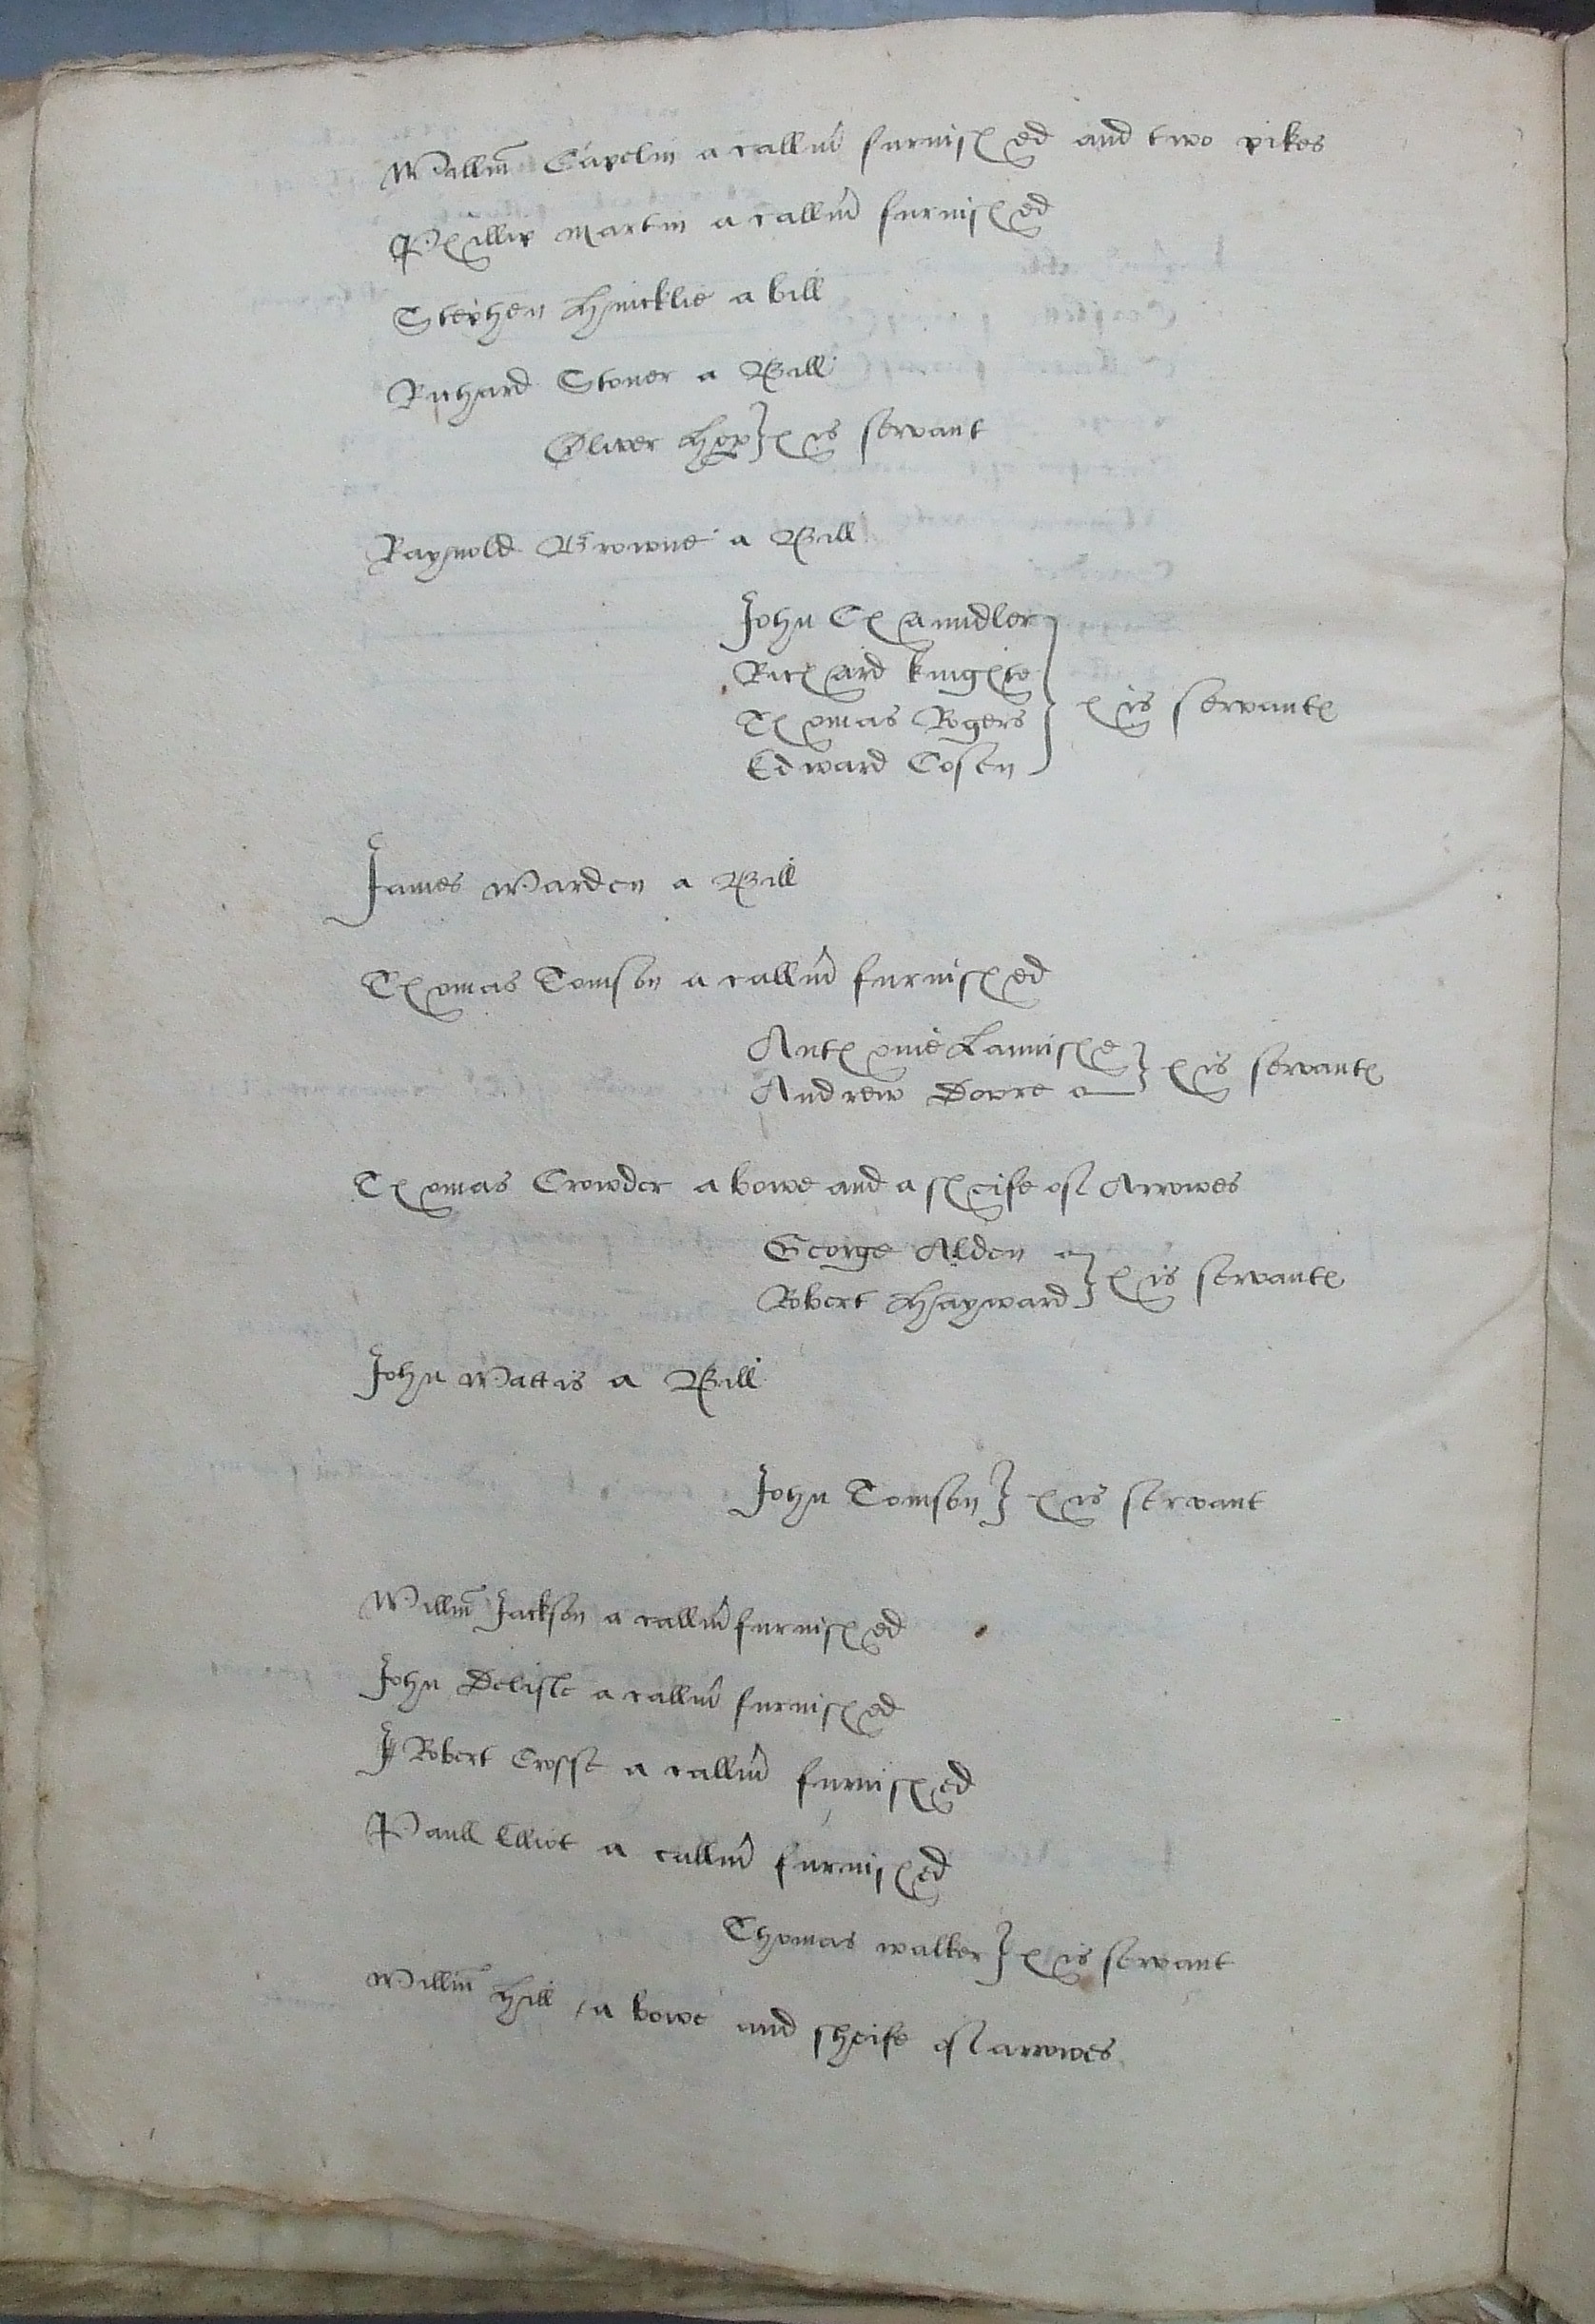 Willm̃ Capelin a callim̃ furnished and two pikes
Phillip Martin a callim̃ furnished
Stephen Hnicklie a bill
Richard Stoner a Bill
Oliver Hop } his servant
Raynold Browne a Bill
John Chaundler
Richard kinghte
Thomas Rogers } his servants
Edward Cosen
James Warden a Bill
Thomas Tomson a callim̃ furnished
Anthonie Lannishe
Andrew Dowre } his servants
Thomas Crowder a bowe and a sheife of Arrowes
George Alden
Robert Hayward } his servants
John Wattis a Bill
John Tomson } his servant
Willm̃ Jackson a callim̃ furnished
John Delisle a callim̃ furnished
Robert Crosse a callim̃ furnished
Paull Elliot a callim̃ furnished
Thomas walker } his servant
Willm̃ Hill a bowe and sheife of arrowes